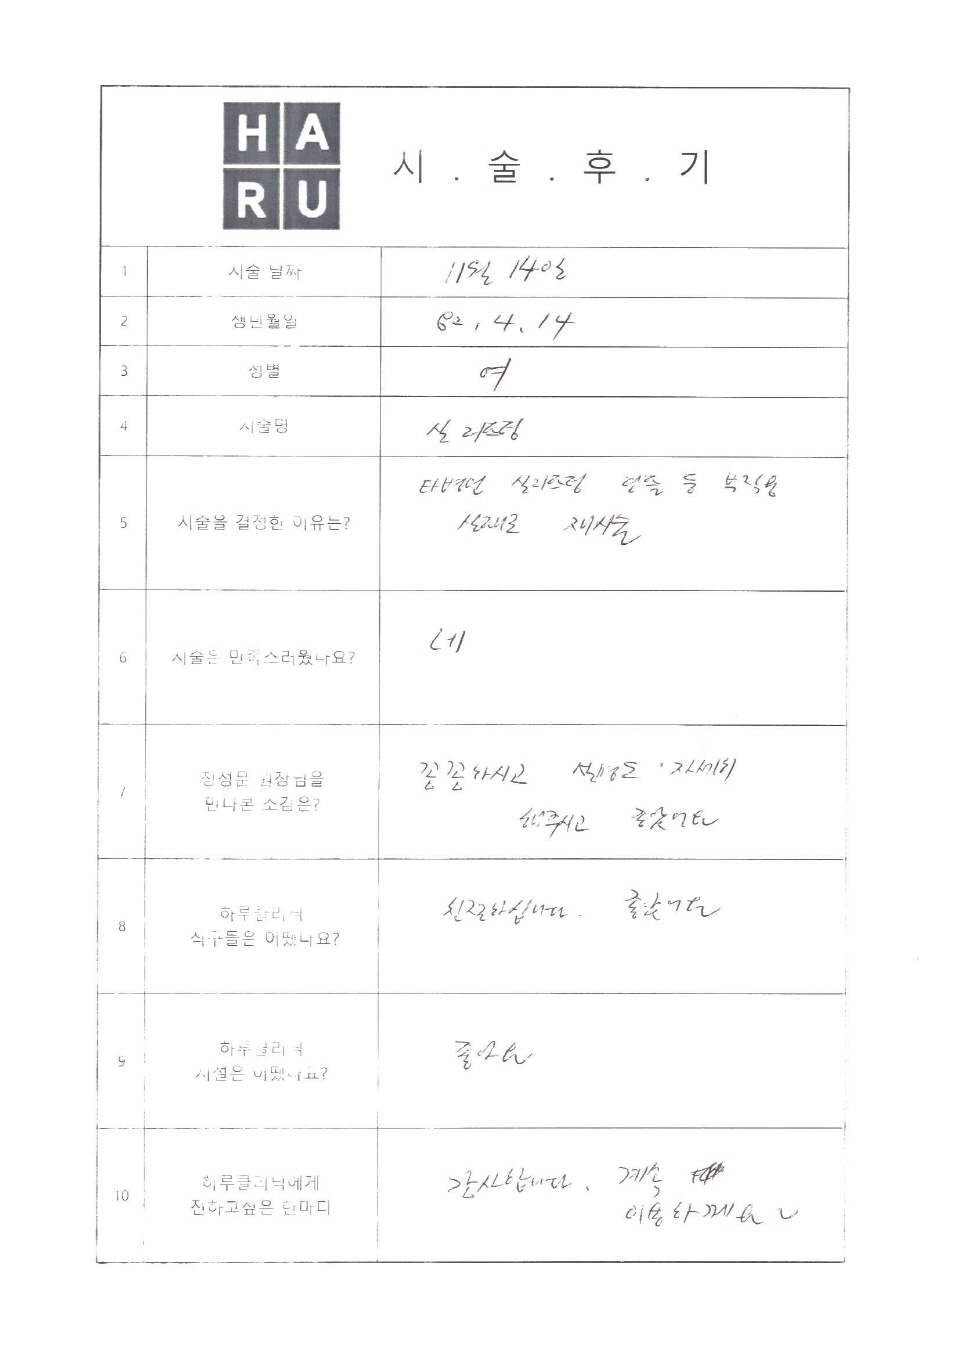 HA
RU
시 . 술 . 후 . 기
1 시술 날짜 11월 14일
2 생년월일 82. 4. 14
3 성별 여
4 시술명 실 리프팅
5 시술을 결정한 이유는? 타병원 실리프팅 염증 등 부작용
실제로 재시술
6 시술은 만족스러웠나요? 네
7 정성문 원장님을
만나본 소감은?
꼼꼼하시고 설명도 자세히
해주시고 좋았어요
8 하루클리닉
식구들은 어땠나요?
친절하십니다. 좋았어요
9 하루클리닉
시설은 어땠나요?
좋아요
10 하루클리닉에게
전하고싶은 한마디
감사합니다. 계속
이용할께요~